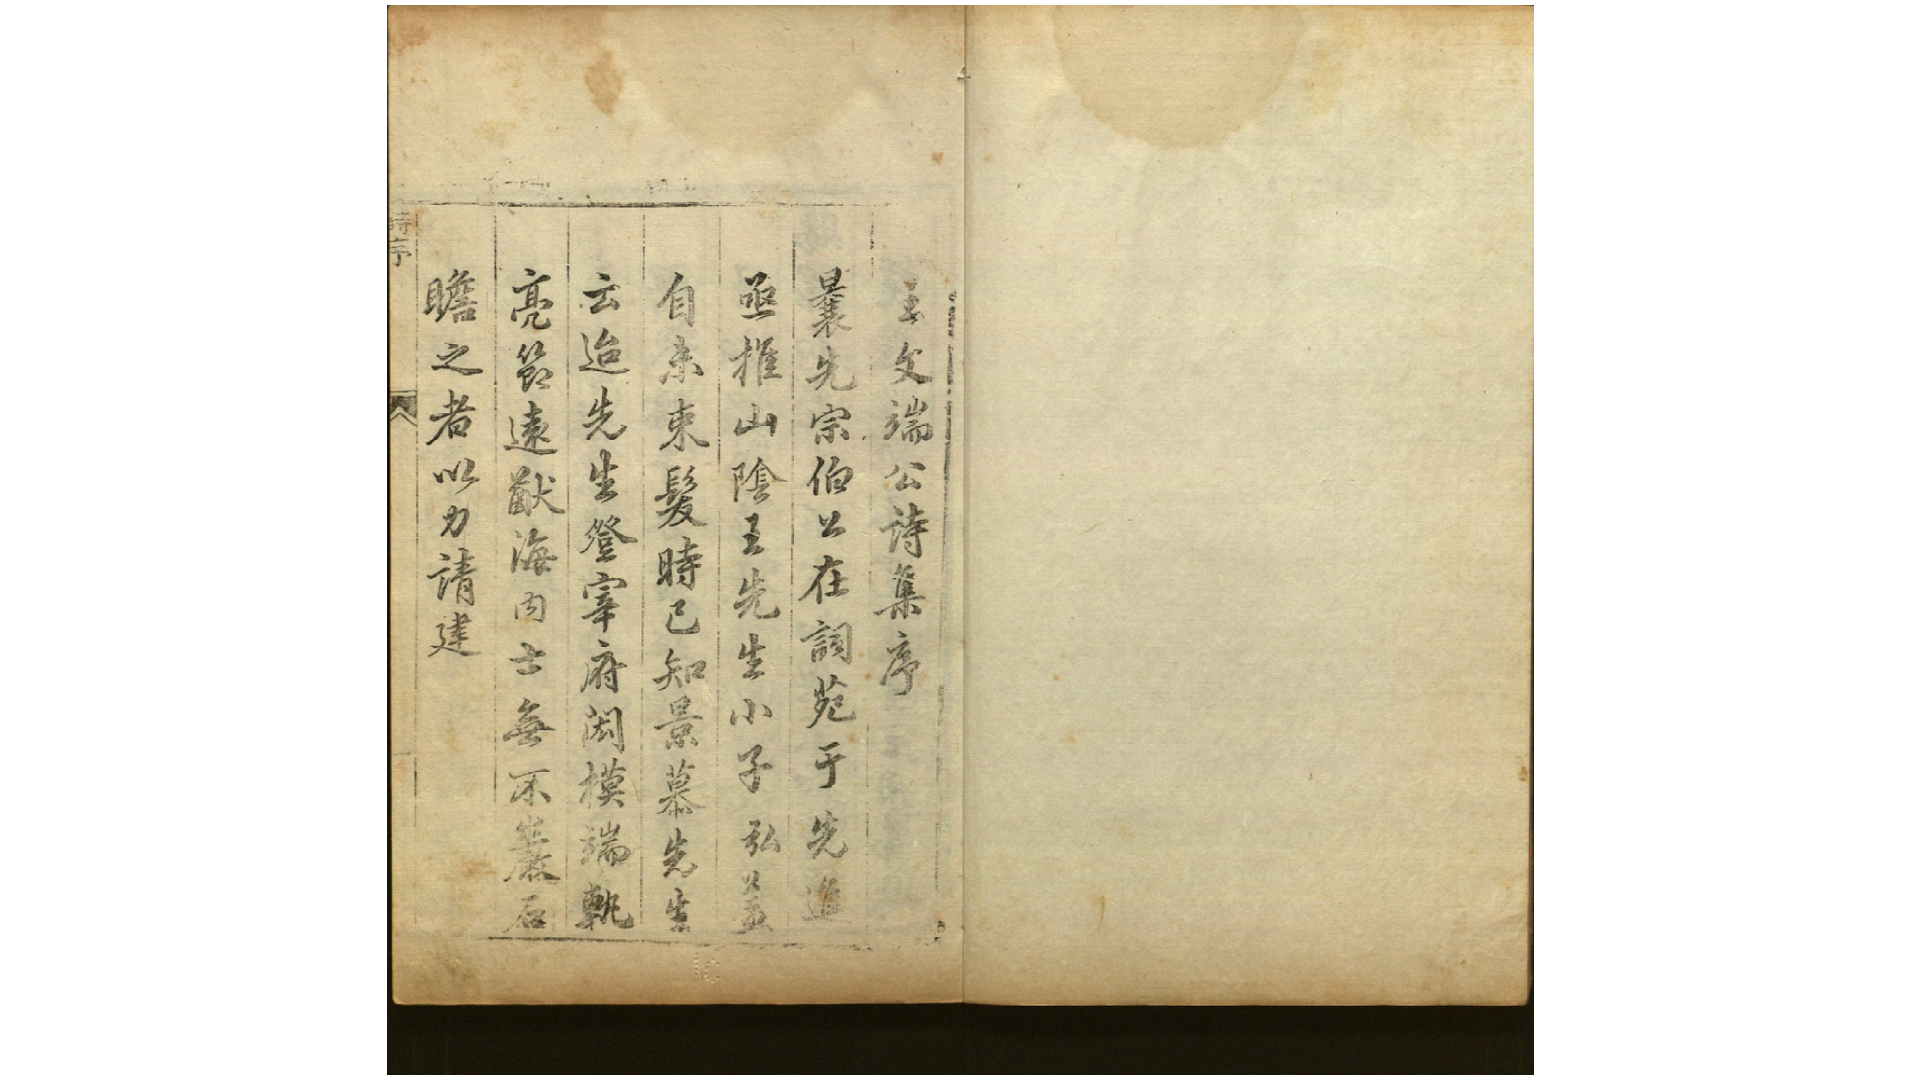 王文端公詩集序
曩先宗伯公在詞苑于先進
亟推山陰王先生小子弘葢
自未束髮時已知景慕先生
云迨先生登宰府閎模端執
亮節遠猷海内士無不巖石
瞻之者以力請建
詩序